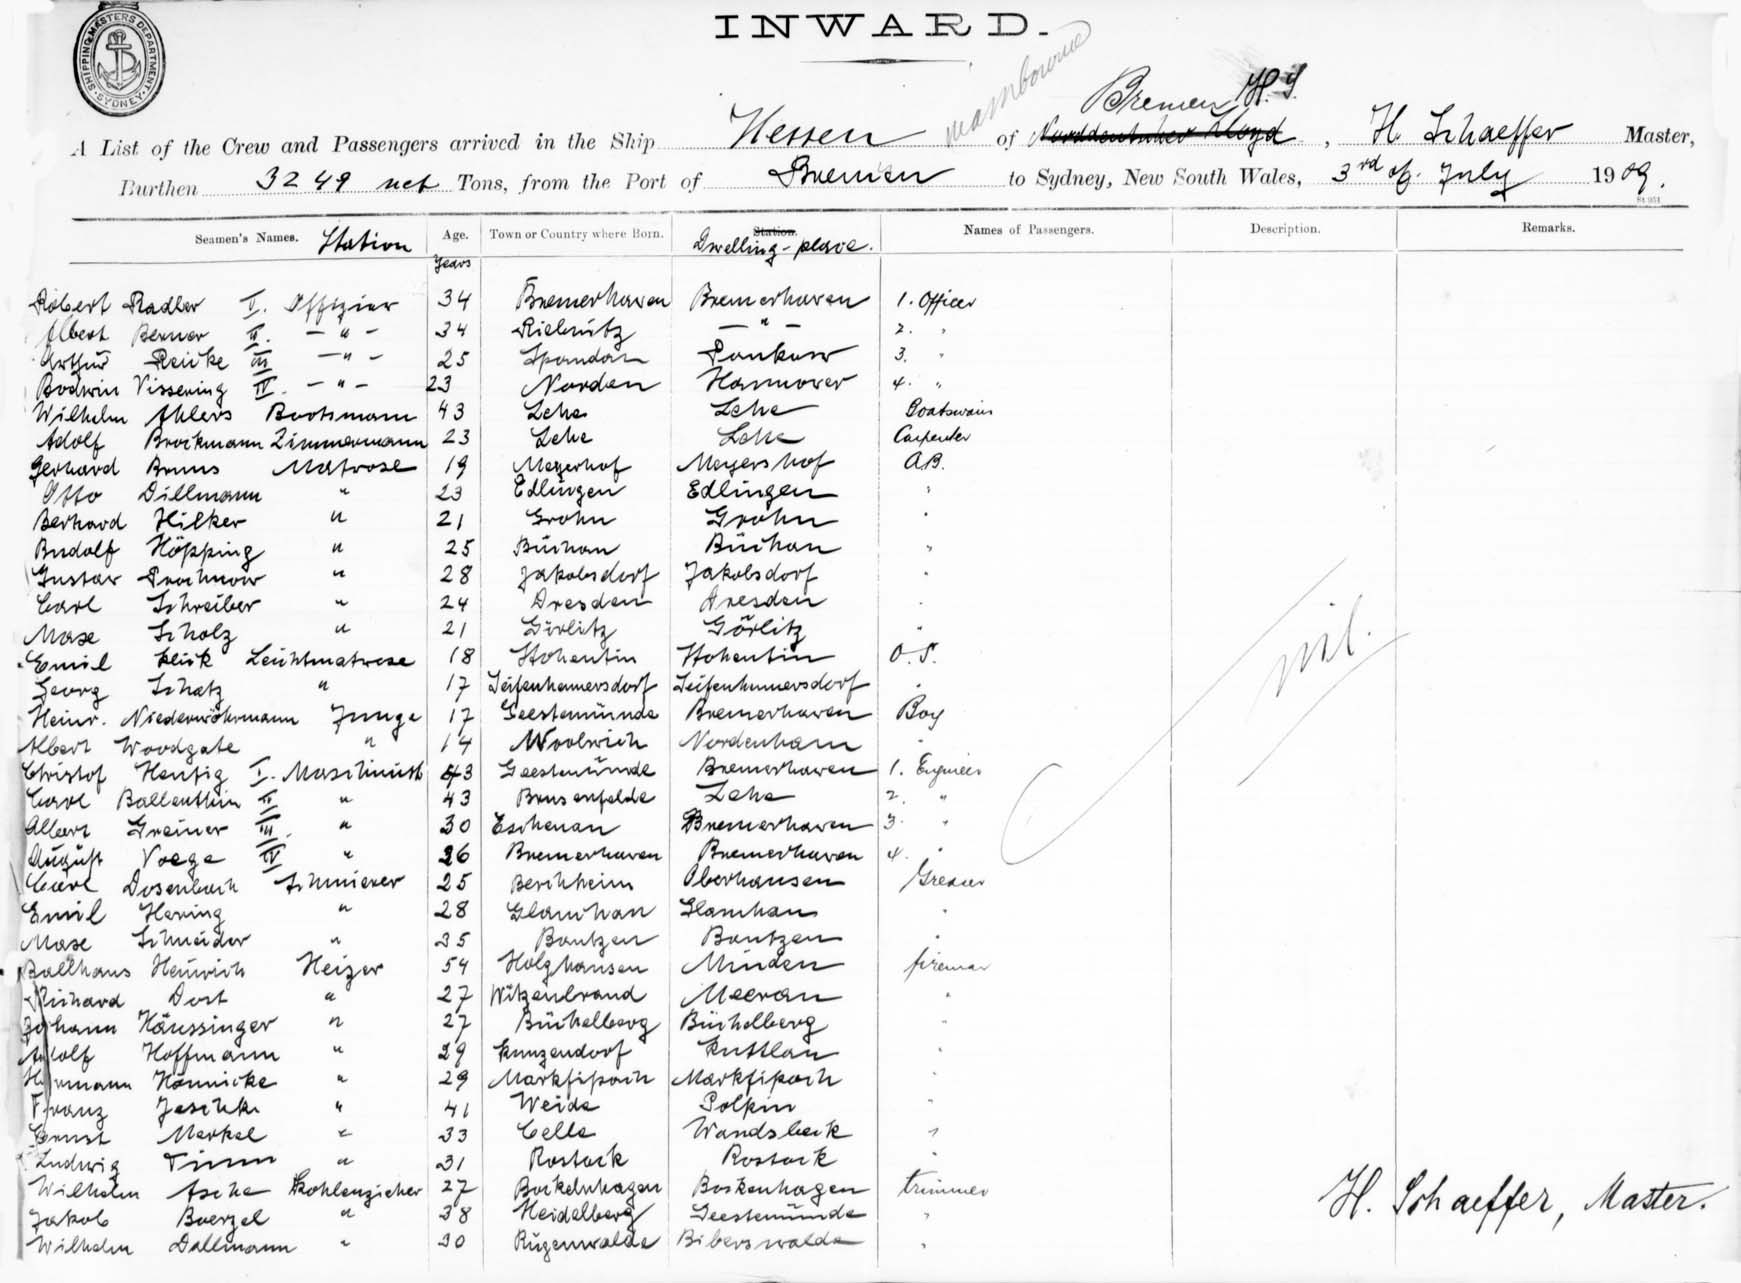 SHIPPING MASTERS DEPARTMENT. SYDNEY
INWARD.
Bremen H. S.
A List of the Crew and Passengers arrived in the Ship Hessen of Norddeutscher Lloyd, H. Schaeffer Master,
Burthen 3249 net Tons, from the Port of Bremen to Sydney, New South Wales, 3rd of July 1909.
Seamen's Names. Station Age. Town or Country where Born. Station. Dwelling-place. Names of Passengers. Description. Remarks.
Years
Robert Radler I. Offizier 34 Bremerhaven Bremerhaven 1. Officer
Albert Berner II. - " - 34 Ribnitz - " - 2. "
Arthur Reicke III - " - 25 Spandau Pankow 3. "
Bodwin Vissering IV. - " - 23 Norden Hannover 4. "
Wilhelm Ahlers Bootsmann 43 Lehe Lehe Boatswain
Adolf Brockmann Zimmermann 23 Lehe Lehe Carpenter
Gerhard Bruns Matrose 19 Meyerhof Meyershof A.B.
Otto Dillmann " 23 Edlingen Edlingen "
Berhard Hilker " 21 Grohn Grohn "
Rudolf Höpping " 25 Büchau Büchau "
Gustav Prochnow " 28 Jakobsdorf Jakobsdorf "
Carl Schreiber " 24 Dresden Dresden "
Max Scholz " 21 Görlitz Görlitz "
Emil Klick Leichtmatrose 18 Hohentin Hohentin O.S.
Georg Schatz " 17 Seifenhennersdorf Seifenhennersdorf "
Heinr. Niederwöhrmann Junge 17 Geestemünde Bremerhaven Boy
Albert Woodgate " 14 Woolwich Nordenham "
Christof Hentig I. Maschinist 43 Geestemünde Bremerhaven 1. Engineer
Carl Ballenthin II " 43 Brusenfelde Lehe 2. "
Albert Greiner III. " 30 Eschenau Bremerhaven 3. "
August Voege IV " 26 Bremerhaven Bremerhaven 4. "
Carl Dosenbach Schmierer 25 Berchheim Oberhausen Greaser
Emil Hering " 28 Glauchau Glauchau "
Max Schneider " 35 Bautzen Bautzen "
Ballhaus Heinrich Heizer 54 Holzhausen Minden fireman
Richard Dost " 27 Witzenbrand Meeran "
Johann Häussinger " 27 Büchelberg Büchelberg "
Adolf Hoffmann " 29 Kunzendorf Kuttlau "
Hermann Hönnicke " 29 Markfipach Markfipach "
Franz Jeschke " 41 Weida Polkin "
Ernst Merkel " 33 Celle Wandsbeck "
Ludwig Timm " 31 Rostock Rostock "
Wilhelm Asche Kohlenzieher 27 Bockelnhagen Bockenhagen trimmer
Jakob Boerzel " 38 Heidelberg Geestemünde "
Wilhelm Dallmann " 30 Rügenwalde Biberswalde "
nil.
H. Schaeffer, Master.